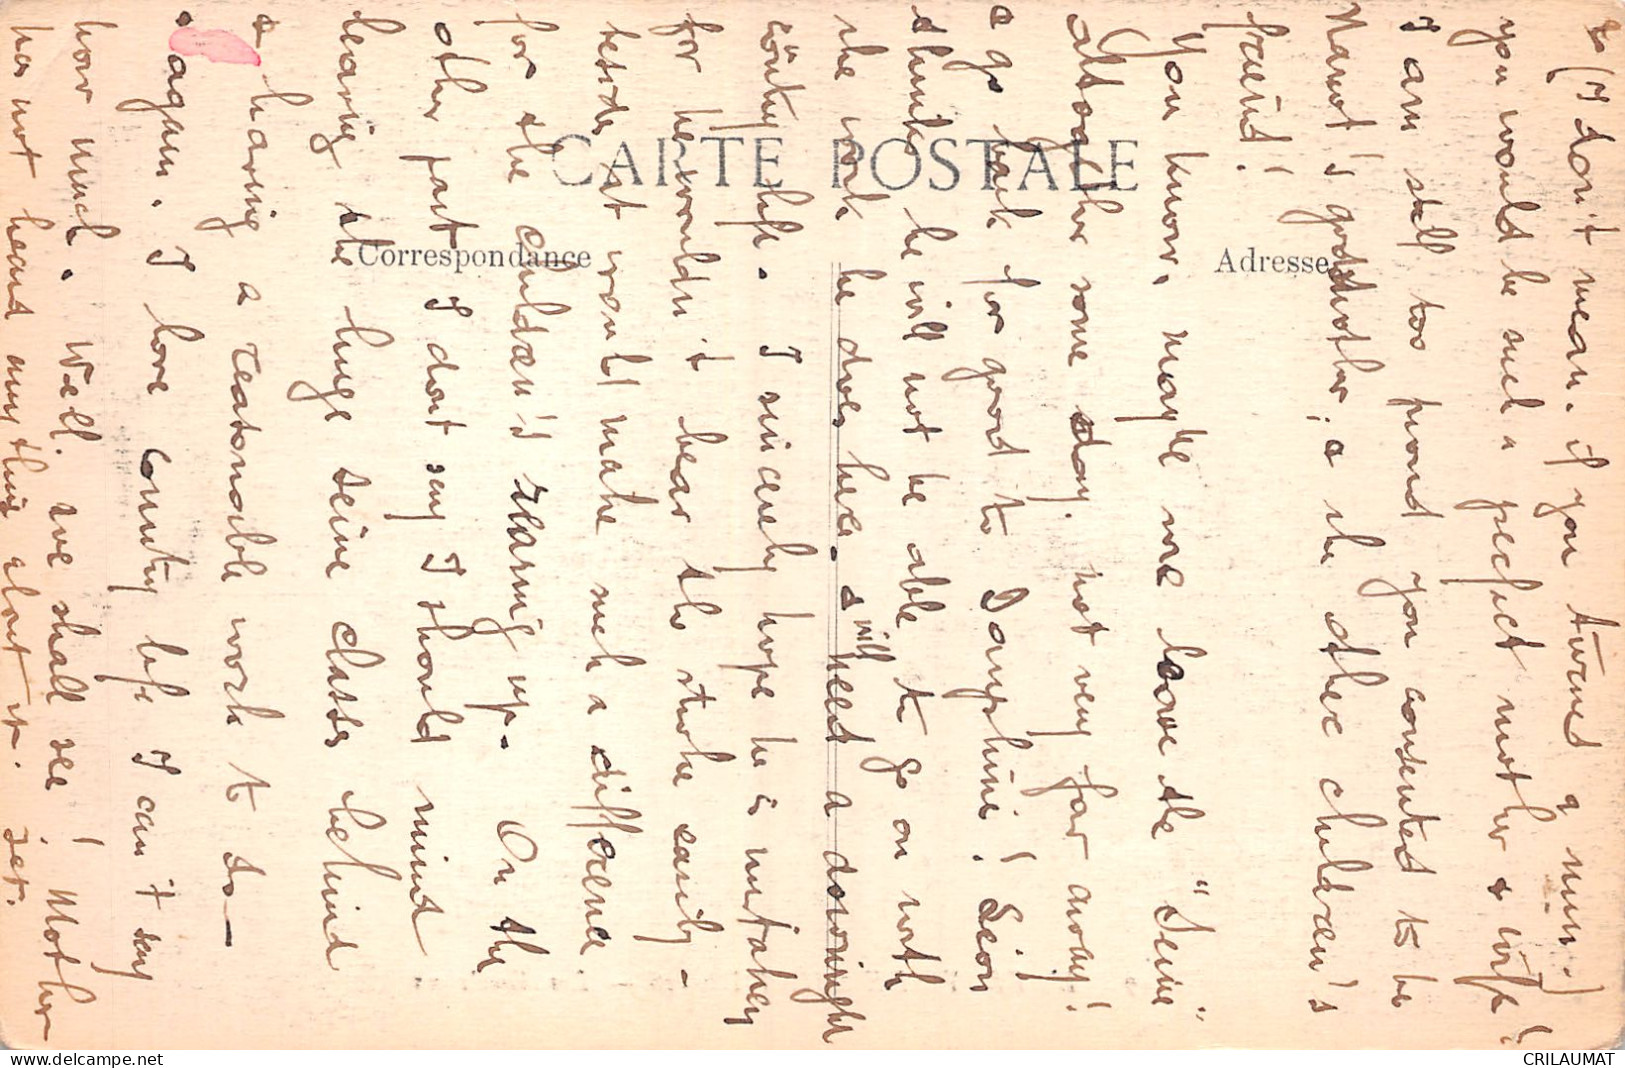 so (I don't mean. if you turned a nun.)
you would be such a perfect mother & wife!
I am still too proud you consented to be
Manot's godmother, & the other children's
friend!
You know, maybe we leave the "Seine"
altogether some day. not very far away!
& go back for good to Dauphiné! Leon
thinks he will not be able to go on with
the work he does here. & will need a downright
country life. I sincerely hope he is mistaken
for he wouldn't bear the stroke easily -
besides it would make such a difference
for the children's rearing up. On the
other part I don't say I should mind
leaving the huge seine class behind
& having a reasonable work to do -
again. I love country life I can't say
how much. Well. we shall see! Mother
has not heard anything about it. yet.
CARTE POSTALE
Correspondance
Adresse
CRILAUMAT